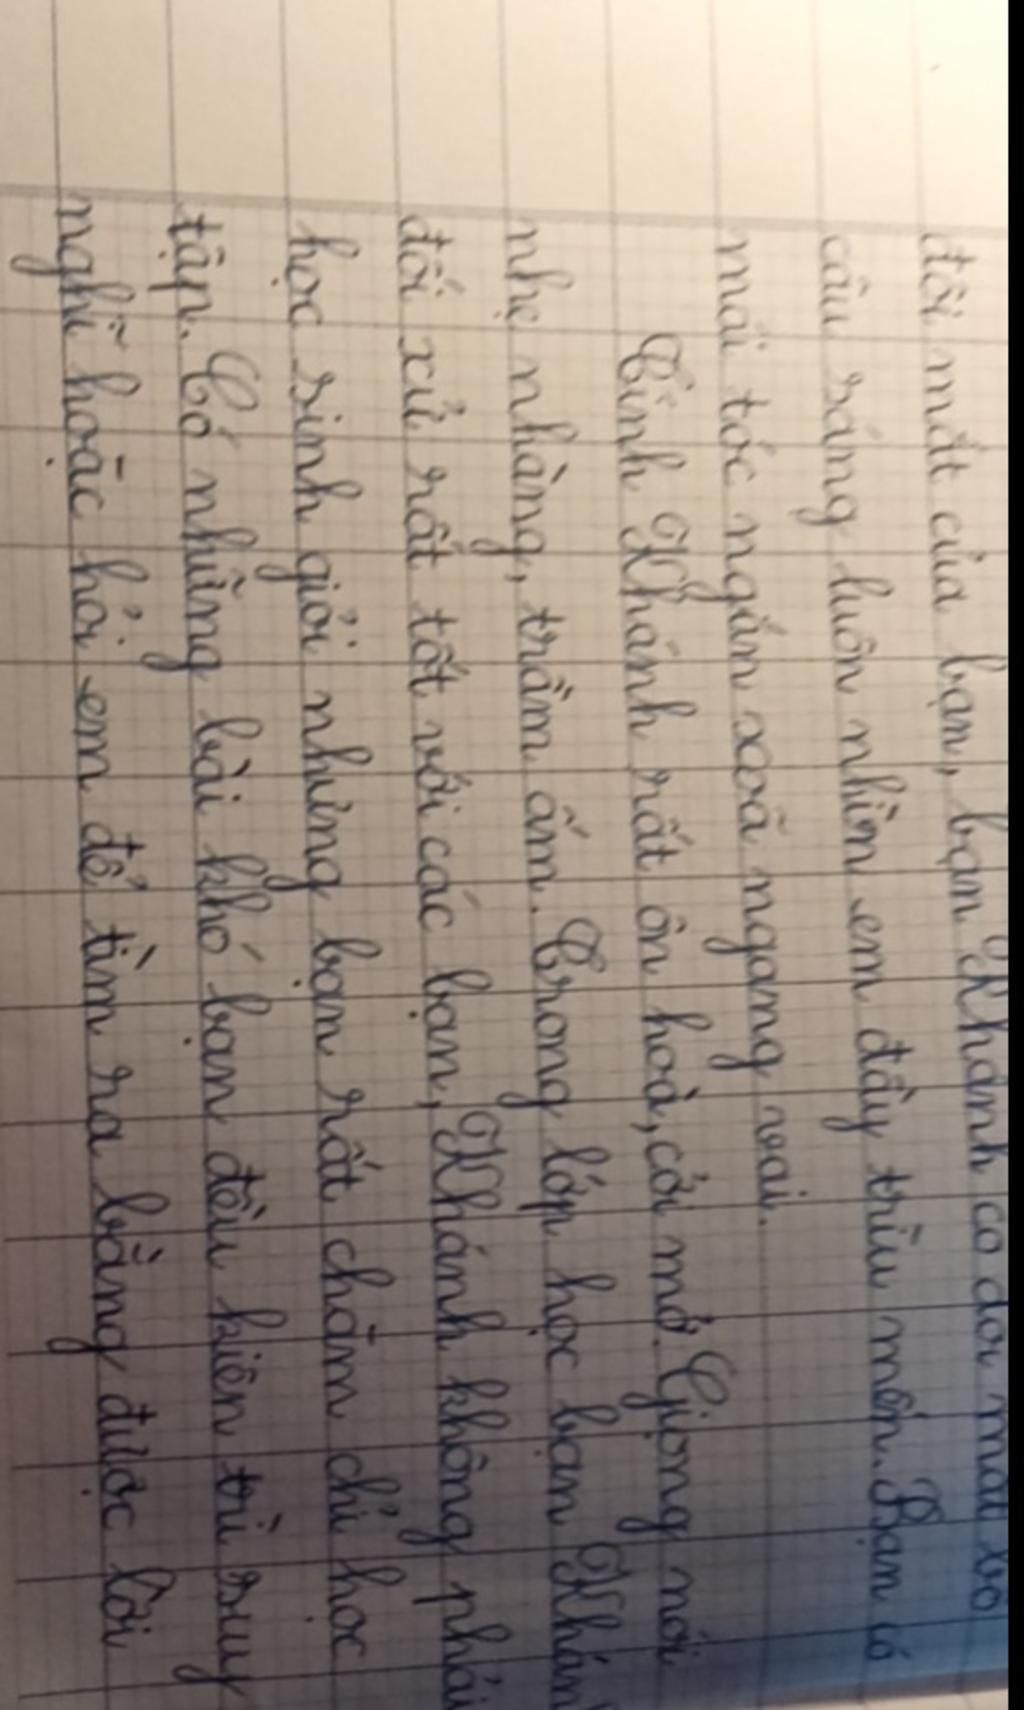 đôi mắt của bạn, bạn Khánh có đôi mắt bồ
câu sáng luôn nhìn em đầy trìu mến. Bạn có
mái tóc ngắn xoã ngang vai.
Tính Khánh rất ôn hoà, cởi mở. Giọng nói
nhẹ nhàng, trầm ấm. Trong lớp học bạn Khán
đối xử rất tốt với các bạn, Khánh không phải
học sinh giỏi nhưng bạn rất chăm chỉ học
tập. Có những bài khó bạn đều kiên trì suy
nghĩ hoặc hỏi em để tìm ra bằng được lời